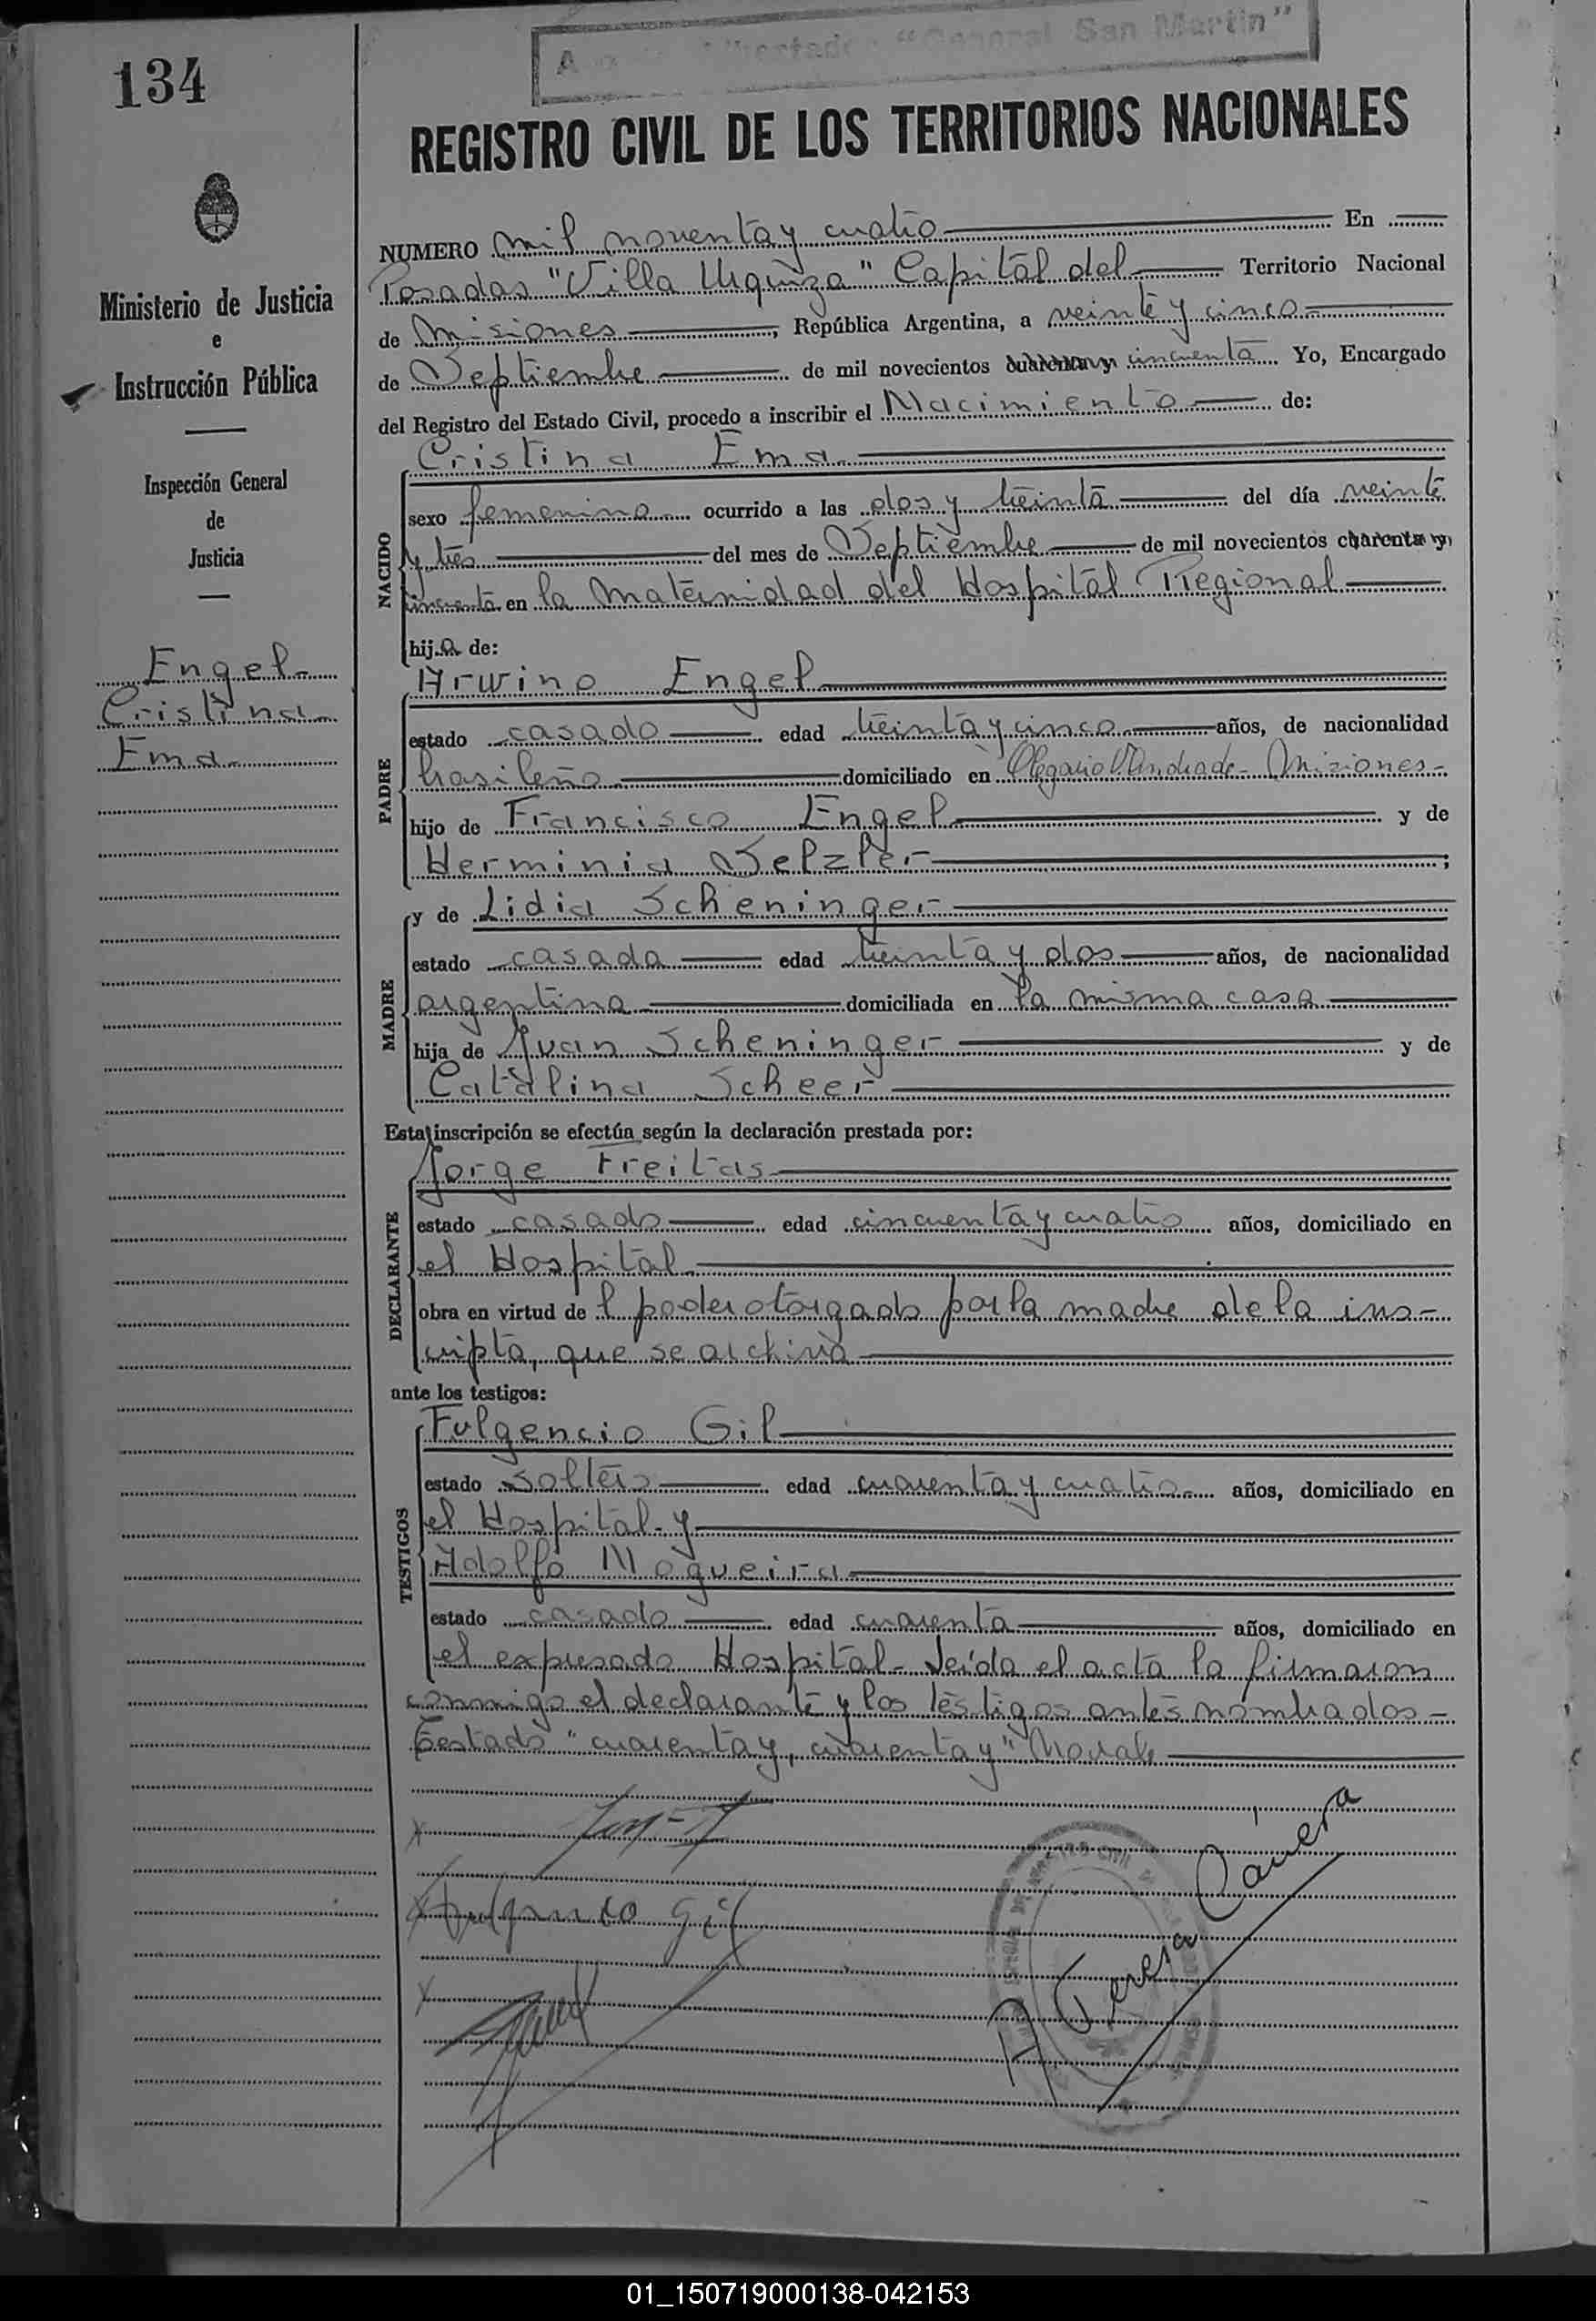 134
"General San Martín"
REGISTRO CIVIL DE LOS TERRITORIOS NACIONALES
Ministerio de Justicia
e
Instrucción Pública
Inspección General
de
Justicia
Engel
Cristina
Ema
NUMERO mil noventa y cuatro En
Posadas "Villa Urquiza" Capital del Territorio Nacional
de Misiones, República Argentina, a veinte y cinco
de Septiembre de mil novecientos cuarenta y cincuenta Yo, Encargado
del Registro del Estado Civil, procedo a inscribir el Nacimiento de:
NACIDO
Cristina Ema
sexo femenino ocurrido a las dos y treinta del día veinte
y tres del mes de Septiembre de mil novecientos cuarenta y
cincuenta en la Maternidad del Hospital Regional
hija de:
PADRE
Arwino Engel
estado casado edad treinta y cinco años, de nacionalidad
brasileña domiciliado en Olegario V. Andrade - Misiones -
hijo de Francisco Engel y de
Herminia Selzler;
MADRE
y de Lidia Scheninger
estado casada edad treinta y dos años, de nacionalidad
argentina domiciliada en la misma casa
hija de Juan Scheninger y de
Catalina Scheer
Esta inscripción se efectúa según la declaración prestada por:
DECLARANTE
Jorge Freitas
estado casado edad cincuenta y cuatro años, domiciliado en
el Hospital
obra en virtud de l poder otorgado por la madre de la ins-
cripta, que se archiva
ante los testigos:
TESTIGOS
Fulgencio Gil
estado soltero edad cuarenta y cuatro años, domiciliado en
el Hospital y
Adolfo Nogueira
estado casado edad cuarenta años, domiciliado en
el expresado Hospital - Leída el acta la firmaron
conmigo el declarante y los testigos antes nombrados -
Testado "cuarenta y, cuarenta y" No vale
Fulgencio Gil
A Teresa Carrera
01_150719000138-042153